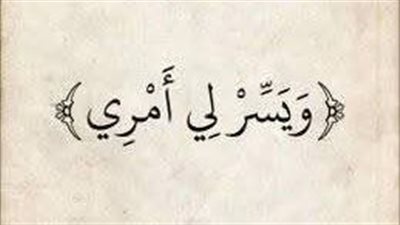 ﴿وَيَسِّرْ لِي أَمْرِي﴾